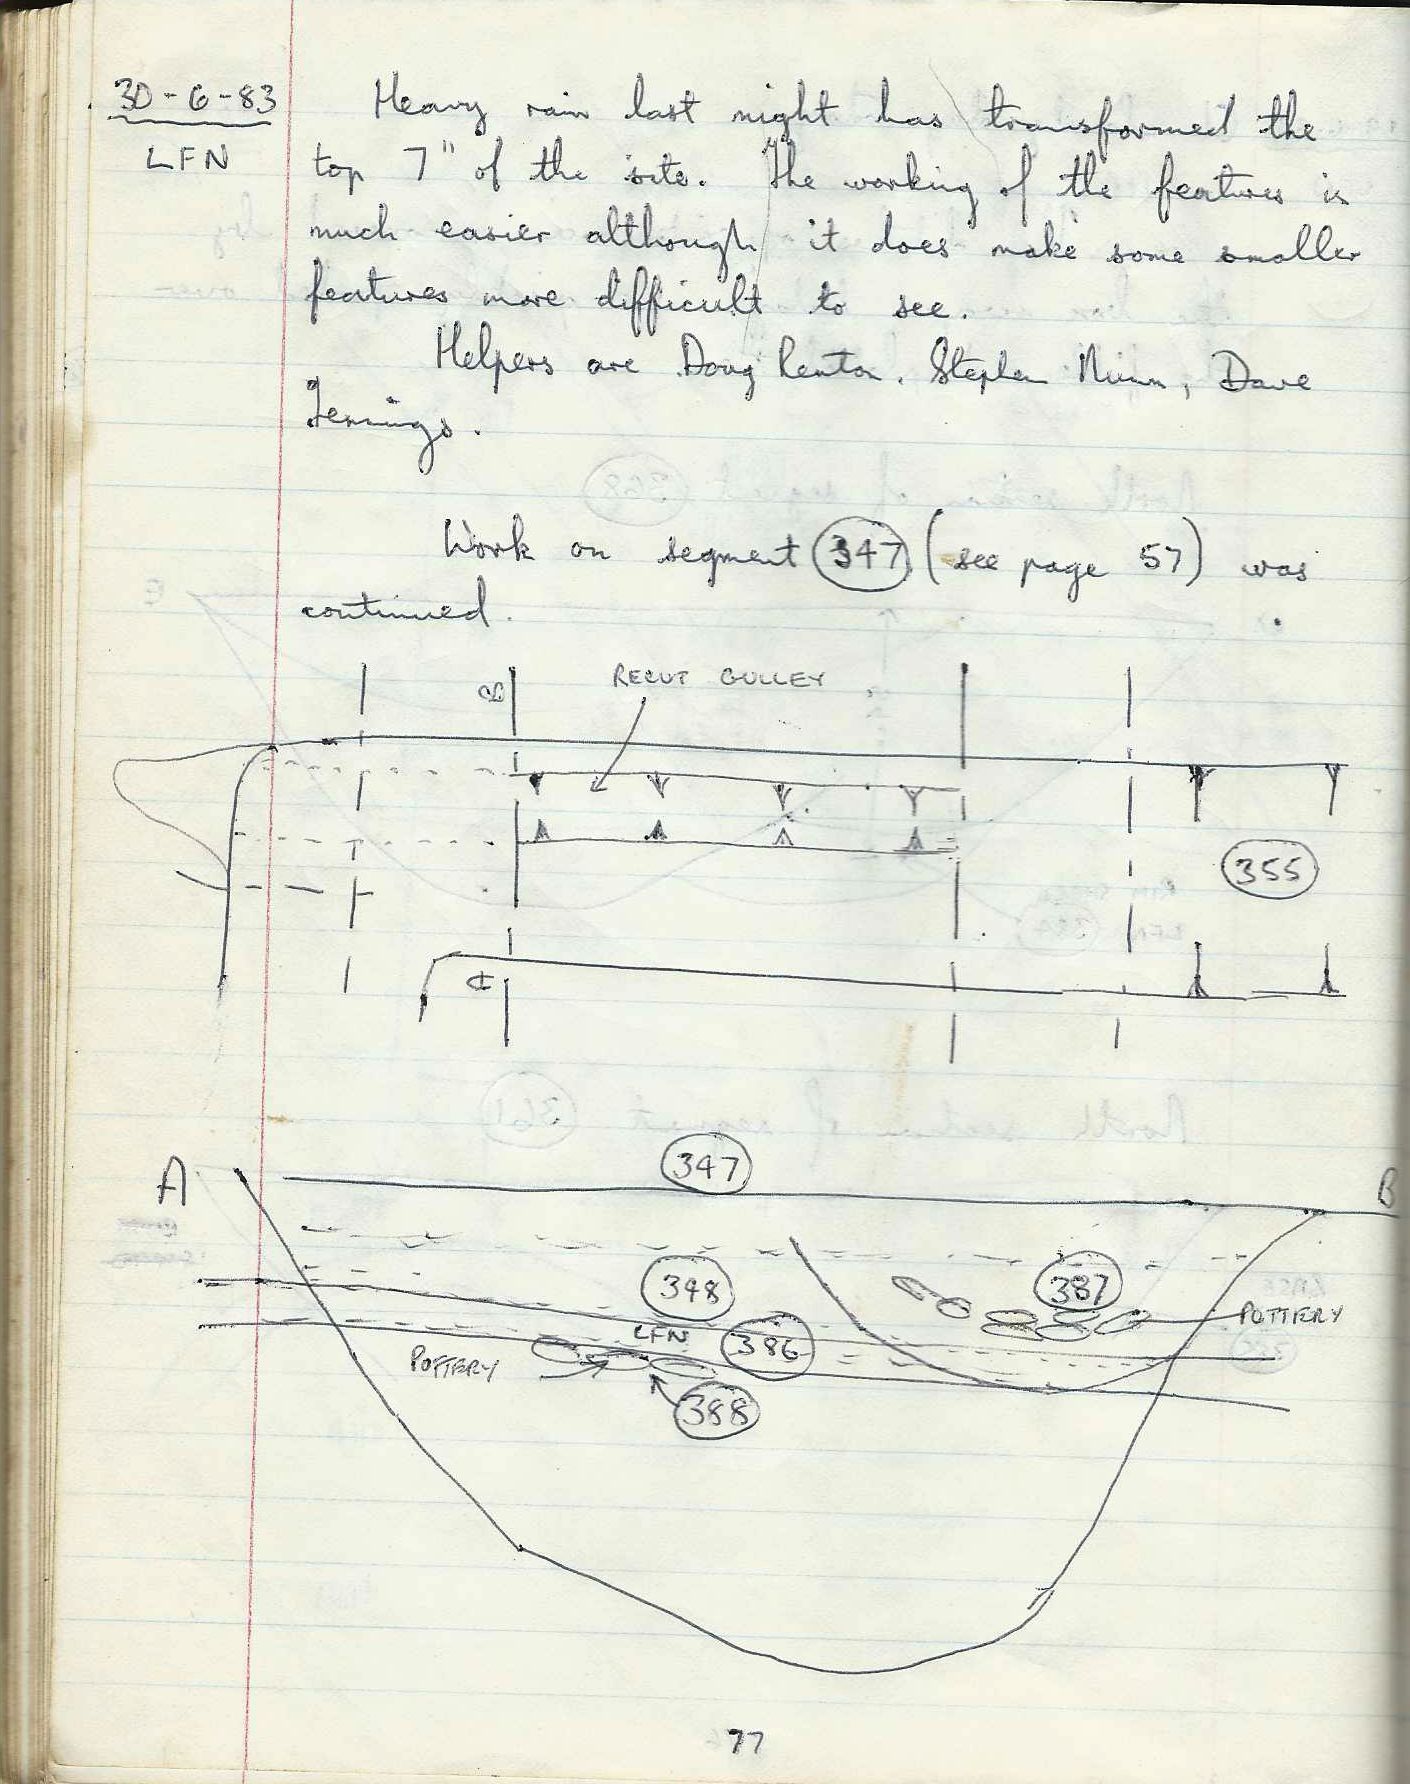 30-6-83
LFN
Heavy rain last night has transformed the
top 7" of the site. The working of the features is
much easier although it does make some smaller
features more difficult to see.
Helpers are Doug Renton, Stephen Nunn, Dave
Jennings.
Work on segment 347 (see page 57) was
continued.
B
RECUT GULLEY
355
A
347
A
B
348
387
POTTERY
LFN
386
POTTERY
388
77